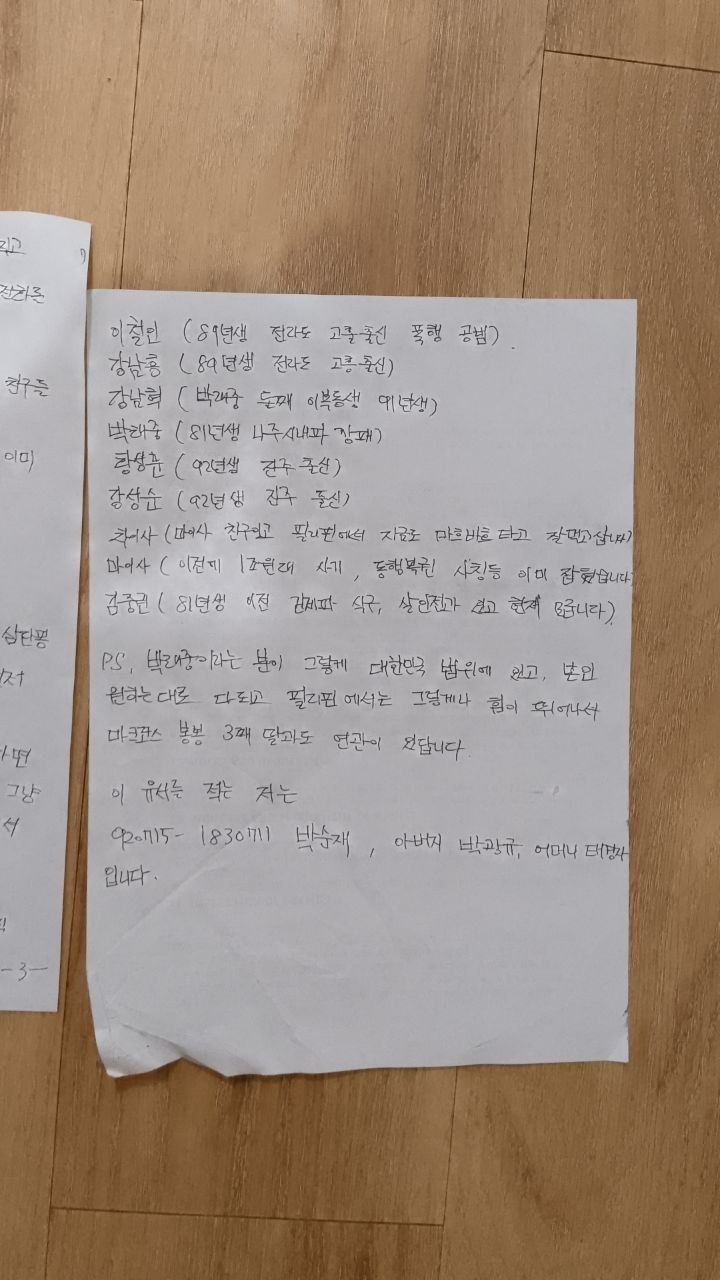 리고
전화를
친구들
이미
삼단봉
그냥
-3-
이철인 (89년생 전라도 고흥출신 폭행 공범).
강남흥 (89년생 전라도 고흥출신)
강남혁 (박래중 둘째 이복동생 91년생)
박래중 (81년생 나주시내파 깡패)
황성준 (92년생 전주 출신)
강성순 (92년생 전주 출신)
(마이사 친구이고 필리핀에서 지금도 마흐바흐 타고 잘먹고삽니다)
마이사 (이전에 1조원대 사기, 동행복권 사칭등 이미 잡혔습니다
김중권 (81년생 이전 김제파 식구, 살인전과 있고 현재 B급니다)
P.S, 박래중이라는 분이 그렇게 대한민국 법위에 있고, 본인
원하는대로 다되고 필리핀에서는 그렇게나 힘이 뛰어나서
마크코스 봉봉 3째 딸과도 연관이 있답니다.
이 유서를 적는 저는
920715-1830711 박순재, 아버지 박광규, 어머니 태경자
입니다.